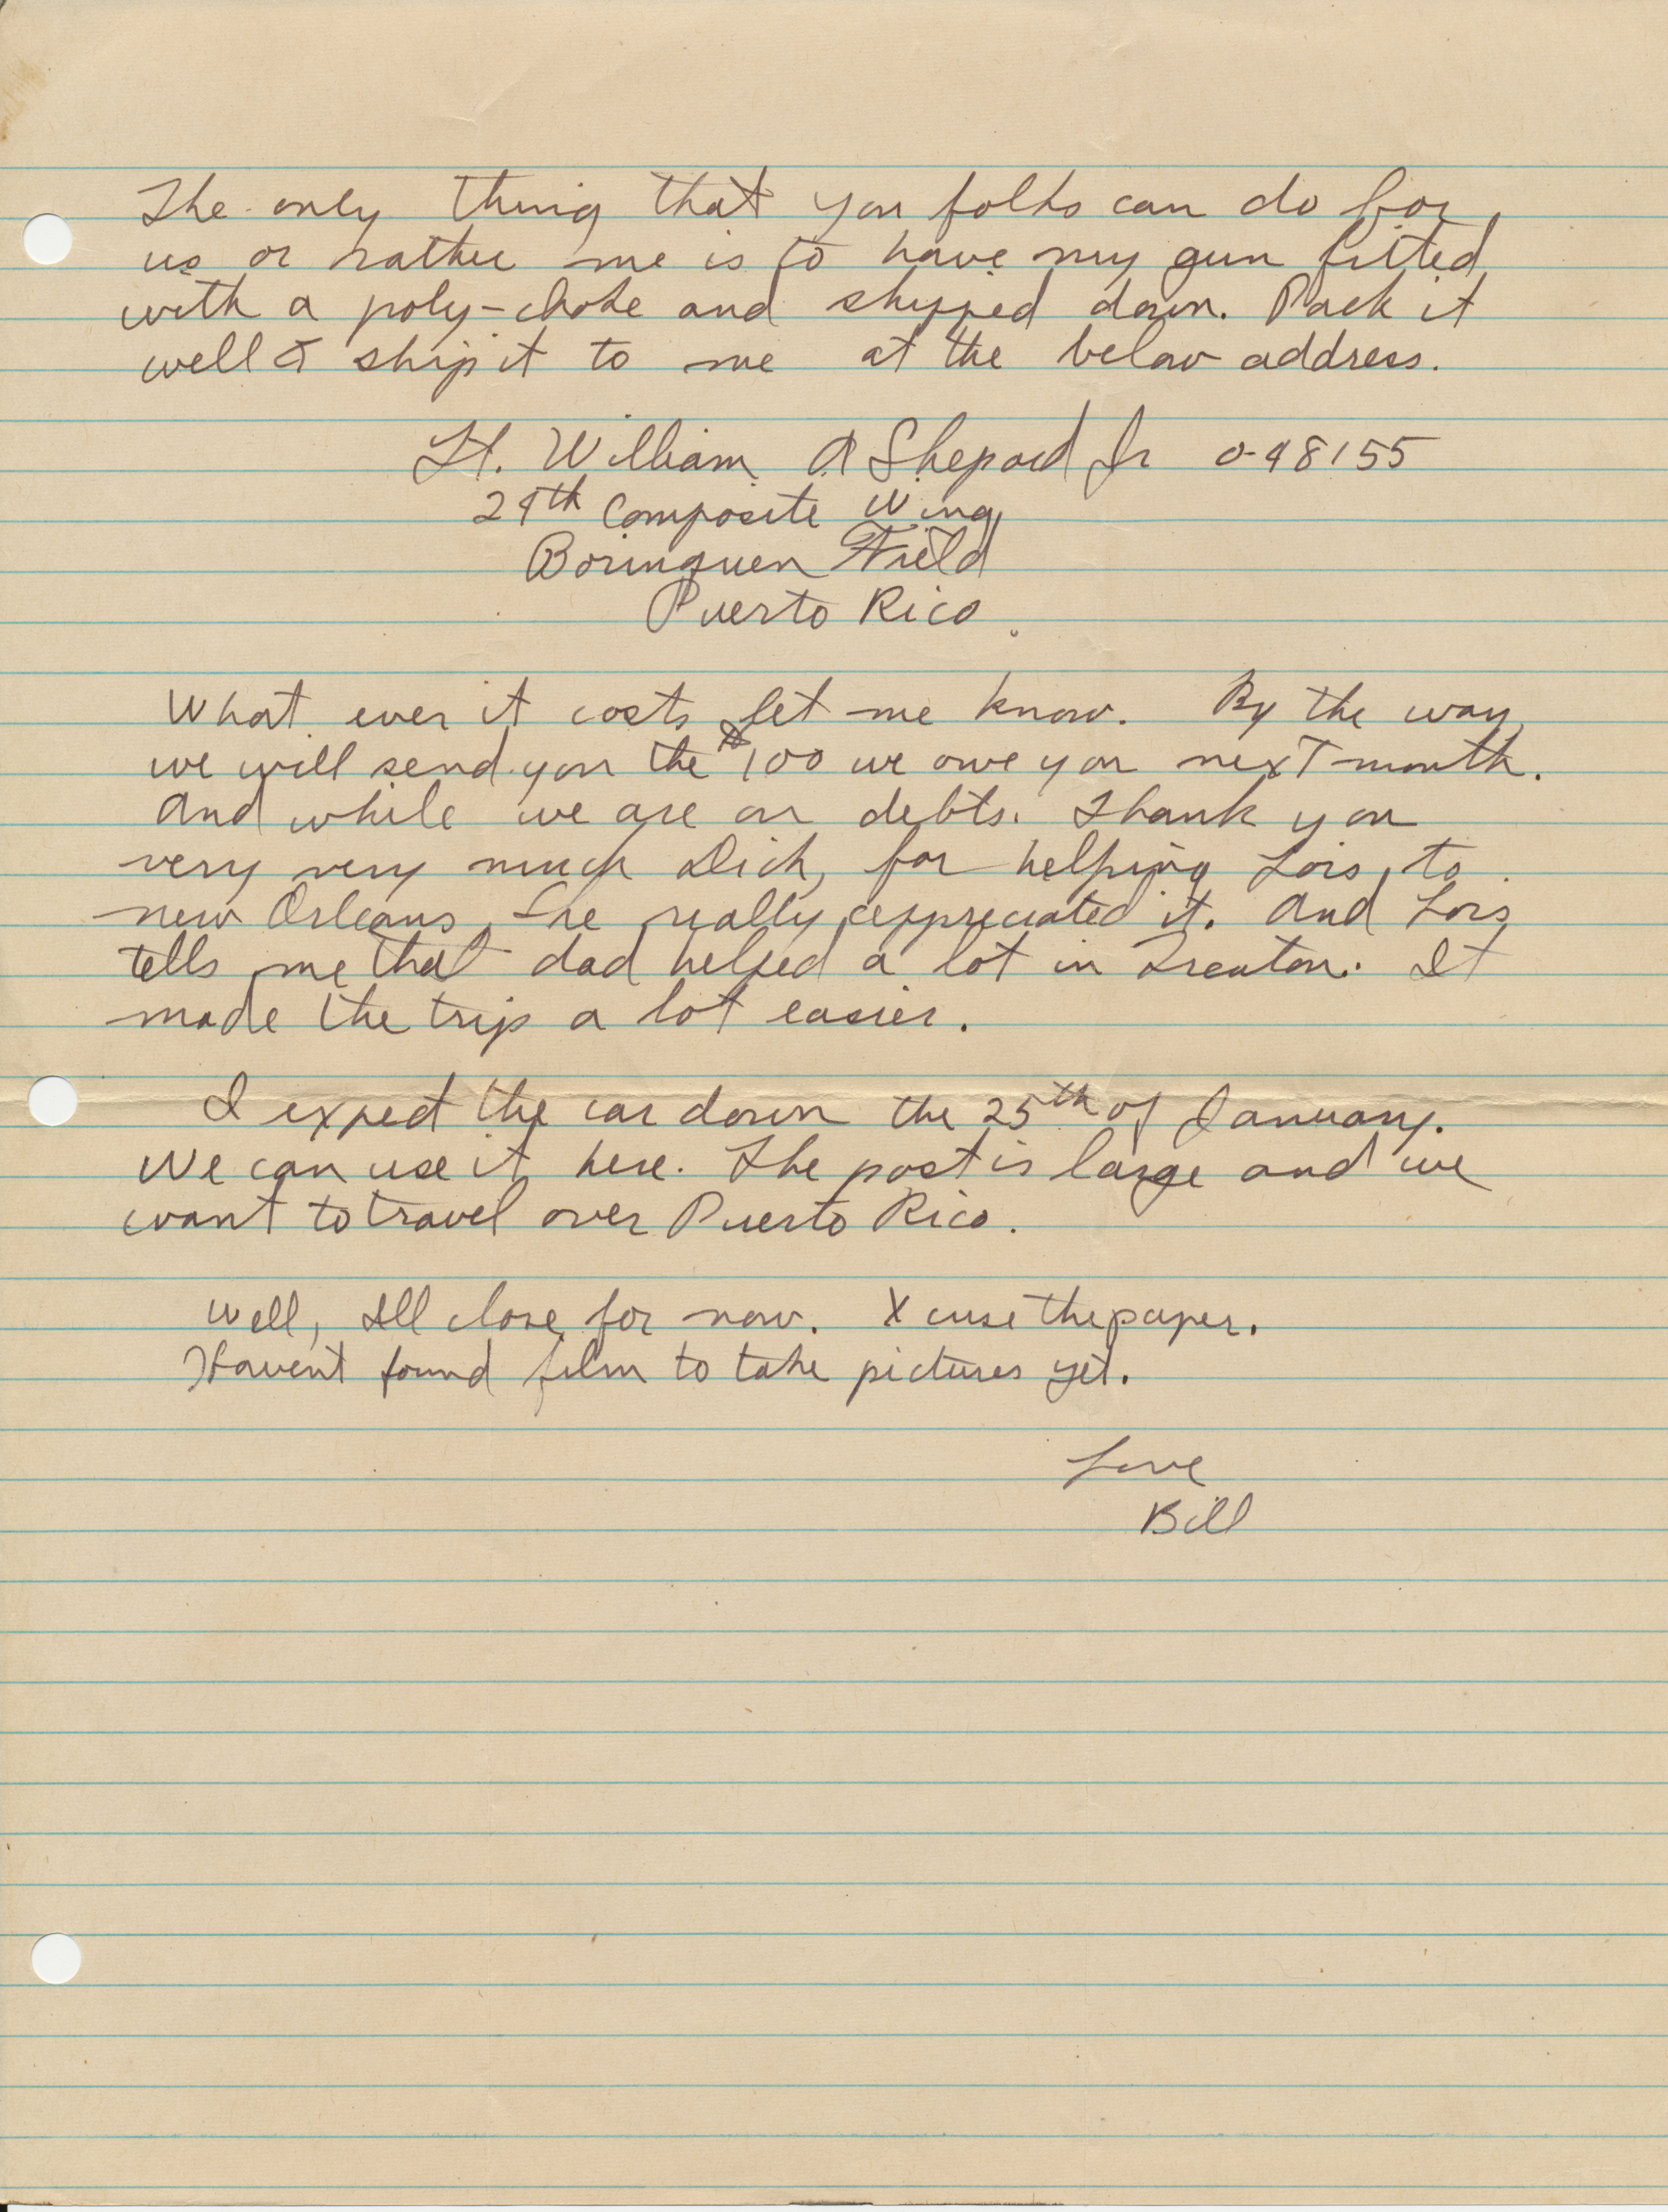 The only thing that you folks can do for
us or rather me is to have my gun fitted
with a poly-choke and shipped down. Pack it
well & ship it to me at the below address.
Lt. William A Shepard Jr 0-98155
29th Composite Wing
Borinquen Field
Puerto Rico.
What ever it costs let me know. By the way,
we will send you the $100 we owe you next month.
And while we are on debts. Thank you
very very much Dick, for helping Lois to
new Orleans, She really appreciated it. And Lois
tells me that dad helped a lot in Trenton. It
made the trip a lot easier.
I expect the car down the 25th of January.
We can use it here. The post is large and we
want to travel over Puerto Rico.
Well, Ill close for now. Xcuse the paper.
Haven't found film to take pictures yet.
Love
Bill